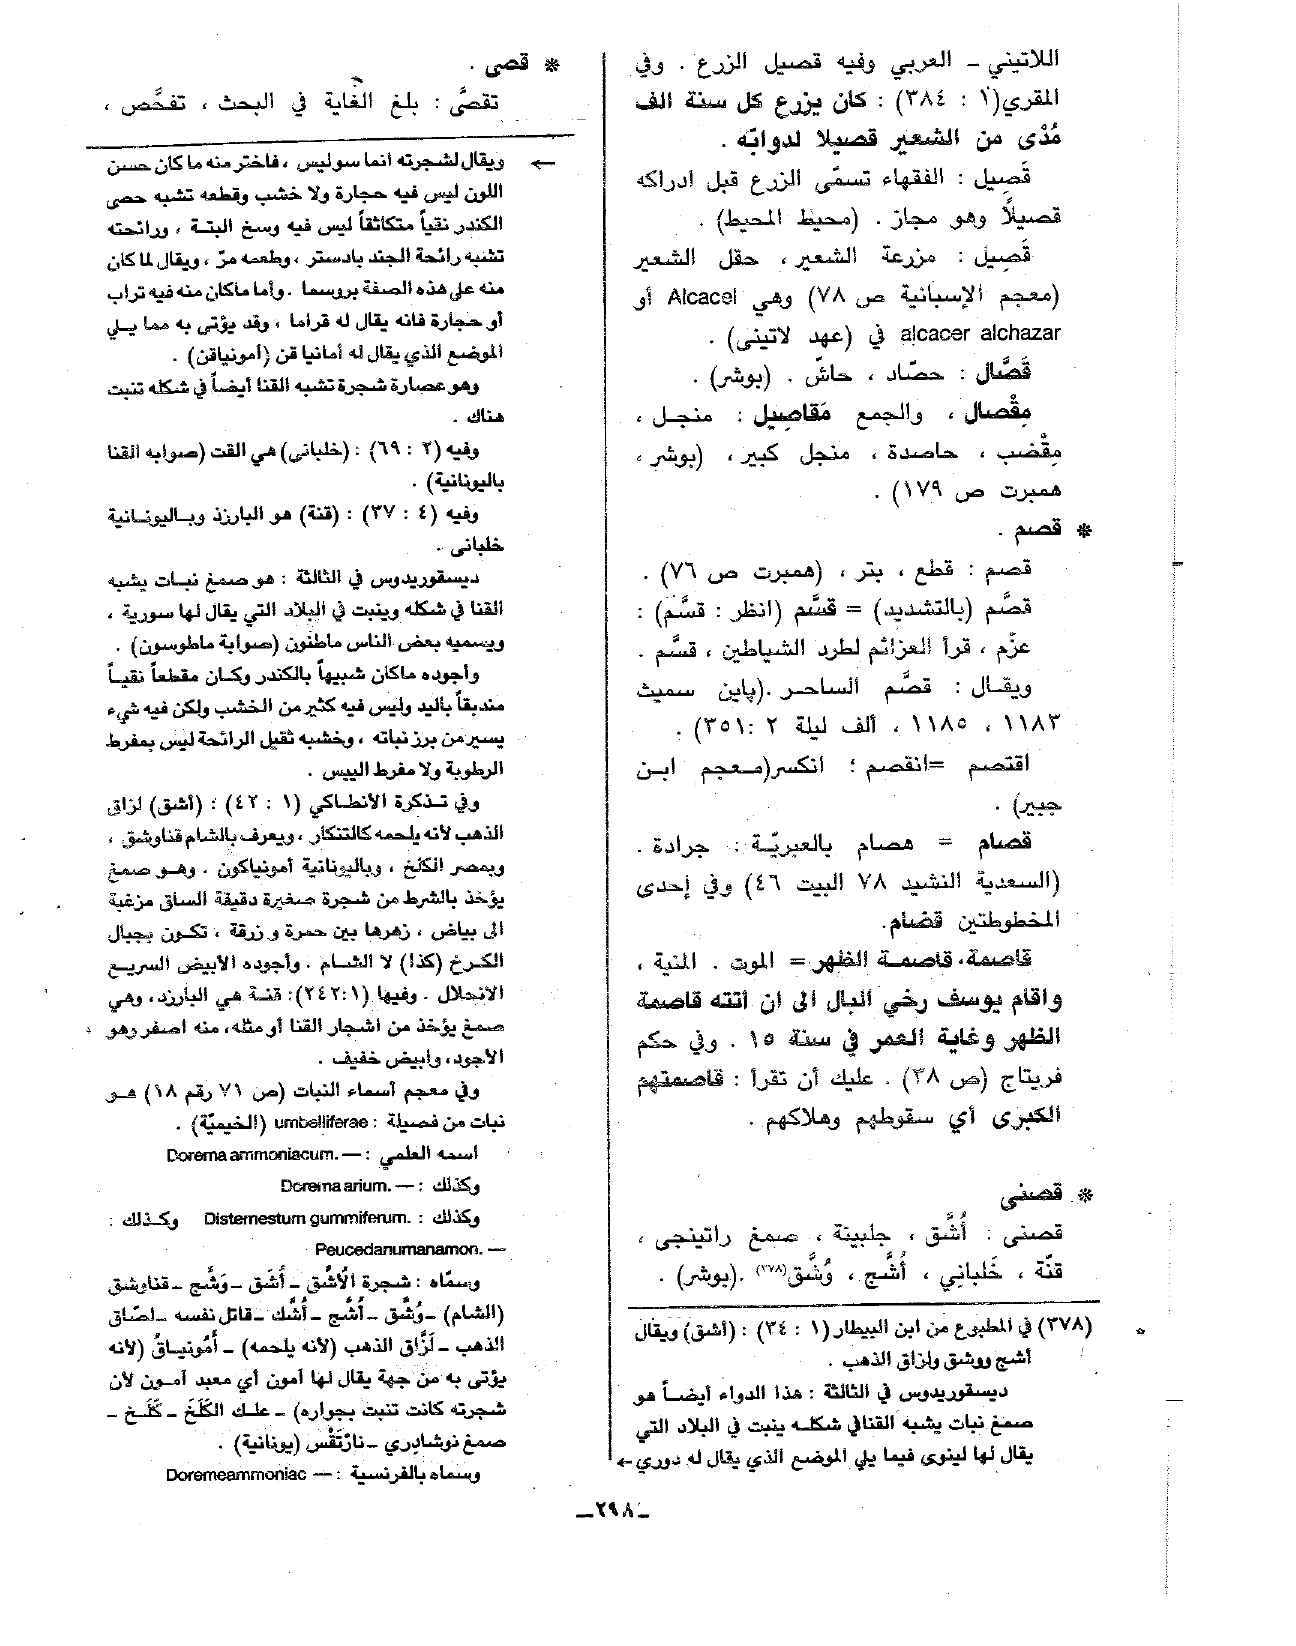 اللاتيني ـ العربي وفيه قصيل الزرع . وفي
المقري(١ : ٣٨٤) : كان يزرع كل سنة الف
مُدْى من الشعير قصيلا لدوابّه .
قَصِيل : الفقهاء تسمّى الزرع قبل ادراكه
قصيلاً وهو مجاز . (محيط المحيط) .
قَصِيل : مزرعة الشعير ، حقل الشعير
(معجم الإسبانية ص ٧٨) وهي Alcacel أو
alcacer alchazar في (عهد لاتينى) .
قَصَّال : حصّاد ، حاشّ . (بوشر) .
مِقْصال ، والجمع مَقاصِيل : منجل ،
مِقْضب ، حاصدة ، منجل كبير ، (بوشر ،
همبرت ص ١٧٩) .
* قصم .
قصم : قطع ، بتر ، (همبرت ص ٧٦) .
قصَّم (بالتشديد) = قسَّم (انظر : قسَّم) :
عزّم ، قرأ العزائم لطرد الشياطين ، قسَّم .
ويقال : قصَّم الساحر .(پاين سميث
١١٨٣ ، ١١٨٥ ، ألف ليلة ٢ :٣٥١) .
اقتصم =انقصم ؛ انكسر(معجم ابن
جبير) .
قصام = هصام بالعبريّة : جرادة .
(السعدية النشيد ٧٨ البيت ٤٦) وفي إحدى
المخطوطتين قضام.
قاصمة، قاصمة الظهر = الموت . المنية ،
واقام يوسف رخي البال الى ان اتته قاصمة
الظهر وغاية العمر في سنة ١٥ . وفي حكم
فريتاج (ص ٣٨) . عليك أن تقرأ : قاصمتهم
الكبرى أي سقوطهم وهلاكهم .
* قصنى
قصنى : أُشَّق ، جلبينة ، صمغ راتينجى ،
قنّة ، خَلباني ، أُشَّج ، وُشَّق(٣٧٨) .(بوشر) .
(٣٧٨) في المطبوع من ابن البيطار (١ : ٣٤) : (أشق) ويقال
أشج ووشق ولزاق الذهب .
ديسقوريدوس في الثالثة : هذا الدواء أيضاً هو
صمغ نبات يشبه القنافي شكله ينبت في البلاد التي
يقال لها لينوى فيما يلي الموضع الذي يقال له دوري ←
* قصى .
تقصَّى : بلغ الغاية في البحث ، تفحَّص ،
← ويقال لشجرته انما سوليس ، فاختر منه ما كان حسن
اللون ليس فيه حجارة ولا خشب وقطعه تشبه حصى
الكندر نقياً متكاثقاً ليس فيه وسخ البتة ، ورائحته
تشبه رائحة الجند بادستر ، وطعمه مرّ ، ويقال لما كان
منه على هذه الصفة بروسما . وأما ماكان منه فيه تراب
أو حجارة فانه يقال له قراما ، وقد يؤتى به مما يلي
الموضع الذي يقال له أمانيا قن (أمونياقن) .
وهو عصارة شجرة تشبه القنا أيضاً في شكله تنبت
هناك .
وفيه (٢ : ٦٩) : (خلبانى) هي القت (صوابه القنا
باليونانية) .
وفيه (٤ : ٣٧) : (قنة) هو البارزذ وباليونانية
خلبانى .
ديسقوريدوس في الثالثة : هو صمغ نبات يشبه
القنا في شكله وينبت في البلاد التي يقال لها سورية ،
ويسميه بعض الناس ماطنون (صوابة ماطوسون) .
وأجوده ماكان شبيهاً بالكندر وكان مقطعاً نقياً
مندبقاً باليد وليس فيه كثير من الخشب ولكن فيه شيء
يسير من برز نباته ، وخشبه ثقيل الرائحة ليس بمفرط
الرطوبة ولا مفرط اليبس .
وفي تذكرة الانطاكي (١ : ٤٢) : (أشق) لزاق
الذهب لأنه يلحمه كالتنكار ، ويعرف بالشام قناوشق ،
وبمصر الكلخ ، وباليونانية أمونياكون . وهو صمغ
يؤخذ بالشرط من شجرة صغيرة دقيقة الساق مزغبة
الى بياض ، زهرها بين حمرة وزرقة ، تكون بجبال
الكرخ (كذا) لا الشام . وأجوده الأبيض السريع
الانحلال . وفيها (١:٢٤٢): قنة هي البارزد، وهي
صمغ يؤخذ من اشجار القنا أو مثله، منه اصفر وهو
الأجود، وابيض خفيف .
وفي معجم أسماء النبات (ص ٧١ رقم ١٨) هو
نبات من فصيلة : umbelliferae (الخيميّة) .
اسمه العلمي : — .Dorema ammoniacum
وكذلك : — .Dorema arium
وكذلك : .Disternestum gummiferum وكذلك :
Peucedanumanamon. —
وسمّاه : شجرة الأُشَّق ـ أُشَق ـ وَشَّج ـ قناوشق
(الشام) ـ وُشَّق ـ أُشَّج ـ أُشَّك ـ قاتل نفسه ـ لصّاق
الذهب ـ لَزَّاق الذهب (لأنه يلحمه) ـ أَمُونياقُ (لأنه
يؤتى به من جهة يقال لها أمون أي معبد آمون لأن
شجرته كانت تنبت بجواره) ـ علك الكَلَخ ـ كَلَخ ـ
صمغ نوشادري ـ نازنَقْس (يونانية) .
وسماه بالفرنسية : — Doremeammoniac
ـ٢٩٨ـ